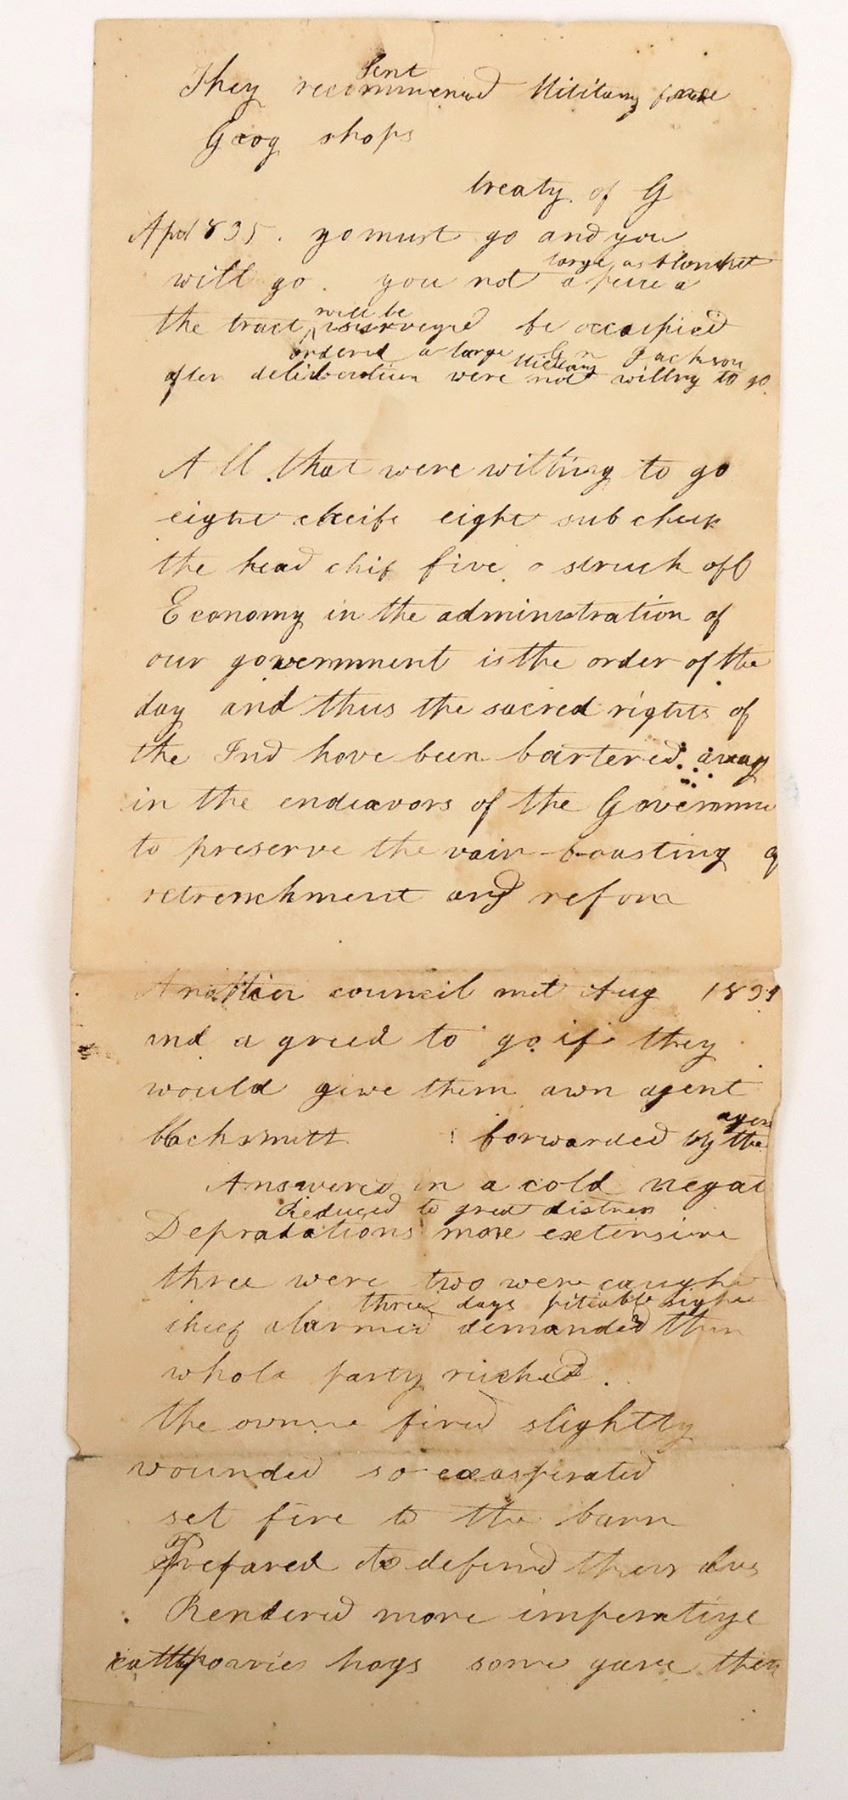 Sent
They recommened Military force
Grog shops
treaty of G
Apr 1835. yo must go and you
large as blanket
will go. you not a piece a
will be
the tract surveyed be occupied
ordered a large Military Gn Jackson
after deliberation were not willing to go
All that were willing to go
eight cheifs eight sub
the head chif five o struck off
Economy in the administration of
our government is the order of the
day and thus the sacred rights of
the Ind have been bartered away
in the endeavors of the Governme
to preserve the vain boasting of
retrenchment and refom
Another council met Aug 183
and agreed to go if they
would give them awn agent
agen
blacksmitt forwarded by the
Answered in a cold negat
Reduced to great distress
Depradations more extensive
three were two were caught
three days pitiable sight
chief alarmed demanded them
whole party rushed.
the owner fired slightly
wounded so exasperated
set fire to the barn
Prepared to defend their
Rendered more imperative
cattle hogs some gave them